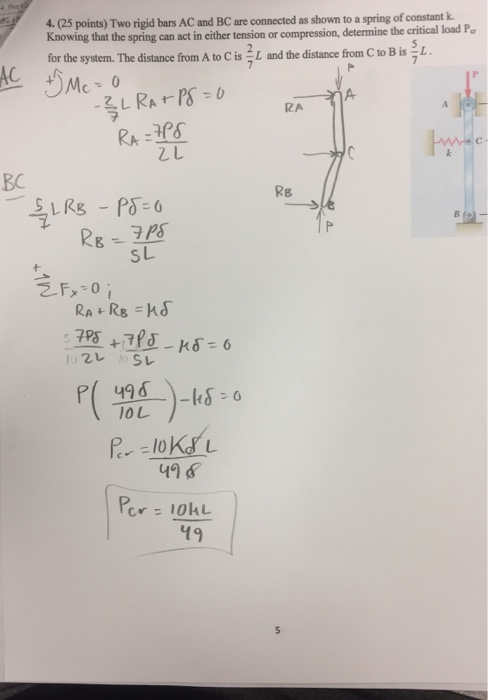 4. (25 points) Two rigid bars AC and BC are connected as shown to a spring of constant k.
Knowing that the spring can act in either tension or compression, determine the critical load Pcr
for the system. The distance from A to C is 2/7 L and the distance from C to B is 5/7 L.
AC
+↺ Mc = 0
-2/7 L RA + Pδ = 0
RA = 7Pδ/2L
BC
5/7 L RB - Pδ = 0
RB = 7Pδ/5L
+→ ΣFx = 0 ;
RA + RB = kδ
7Pδ/2L + 7Pδ/5L - kδ = 0
P( 49δ/10L ) - kδ = 0
Pcr = 10KδL/49δ
Pcr = 10kL/49
P
A
RA
C
RB
B
P
P
A
C
k
B
5